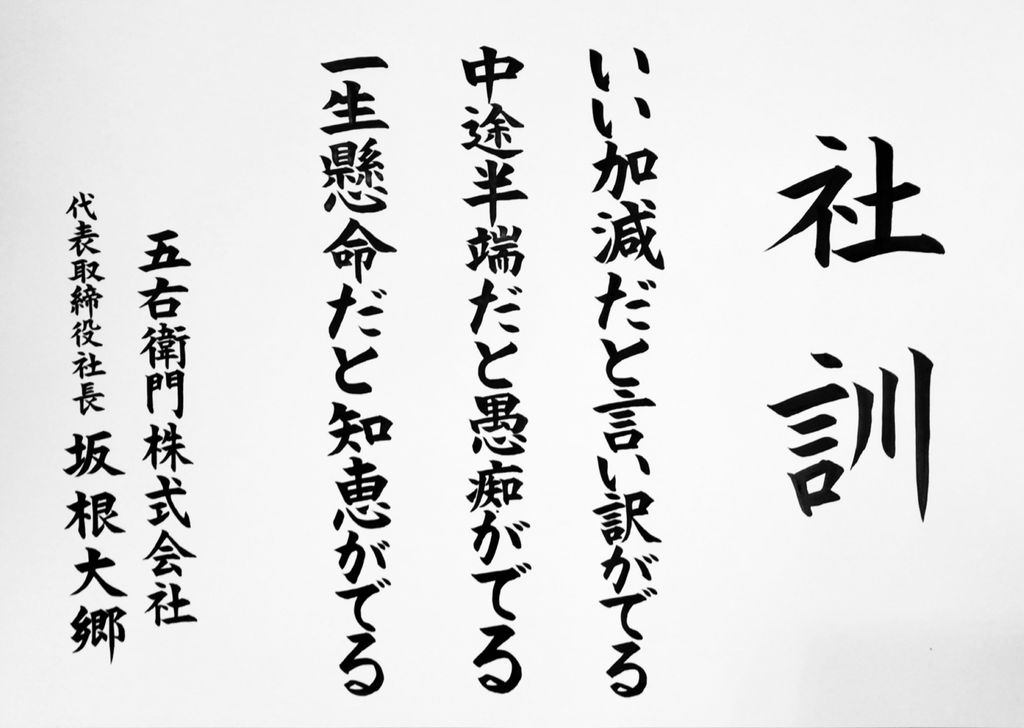 社訓
いい加減だと言い訳がでる
中途半端だと愚痴がでる
一生懸命だと知恵がでる
五右衛門株式会社
代表取締役社長 坂根大郷